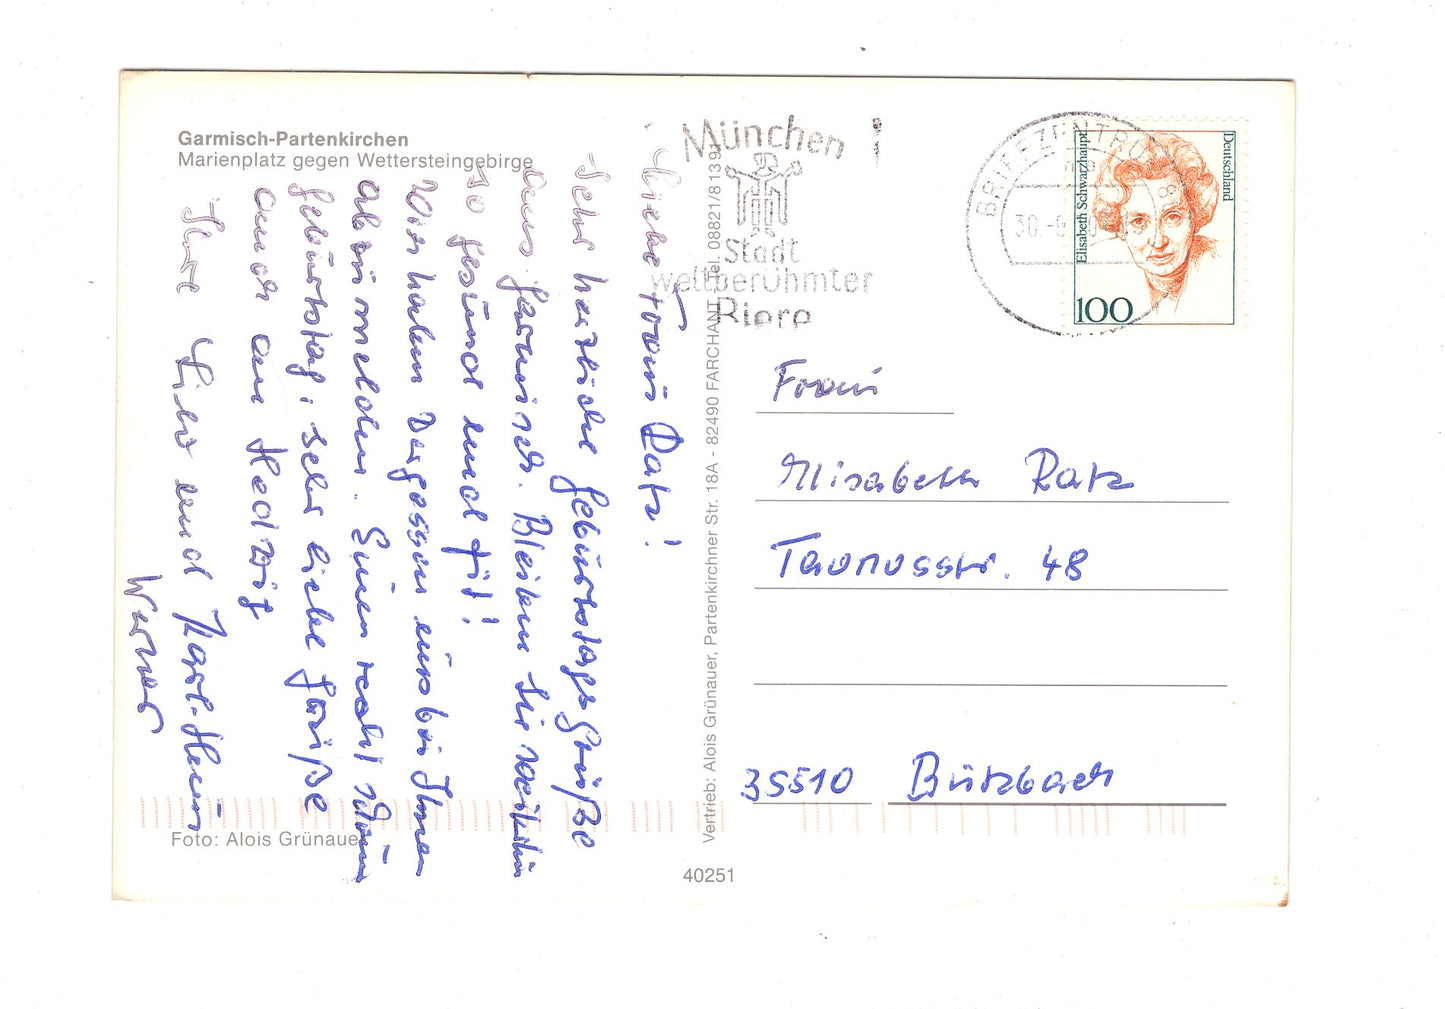 Garmisch-Partenkirchen
Marienplatz gegen Wettersteingebirge
Liebe Frau Ratz!
Sehr herzliche Geburtstagsgrüße
aus Garmisch. Bleiben Sie weiterhin
so gesund und fit!
Wir haben vergessen uns bei Ihnen
abzumelden. Einen recht schönen
Geburtstag, sehr liebe Grüße
auch an Hedwig
Ihre Lilo und Karl-Heinz
Werner
Foto: Alois Grünauer
Vertrieb: Alois Grünauer, Partenkirchner Str. 18A - 82490 FARCHANT, Tel. 08821/6139
40251
München
Stadt
weltberühmter
Biere
BRIEFZENTRUM
30.-6
Deutschland
Elisabeth Schwarzhaupt
100
Frau
Elisabeth Ratz
Taunusstr. 48
35510 Butzbach